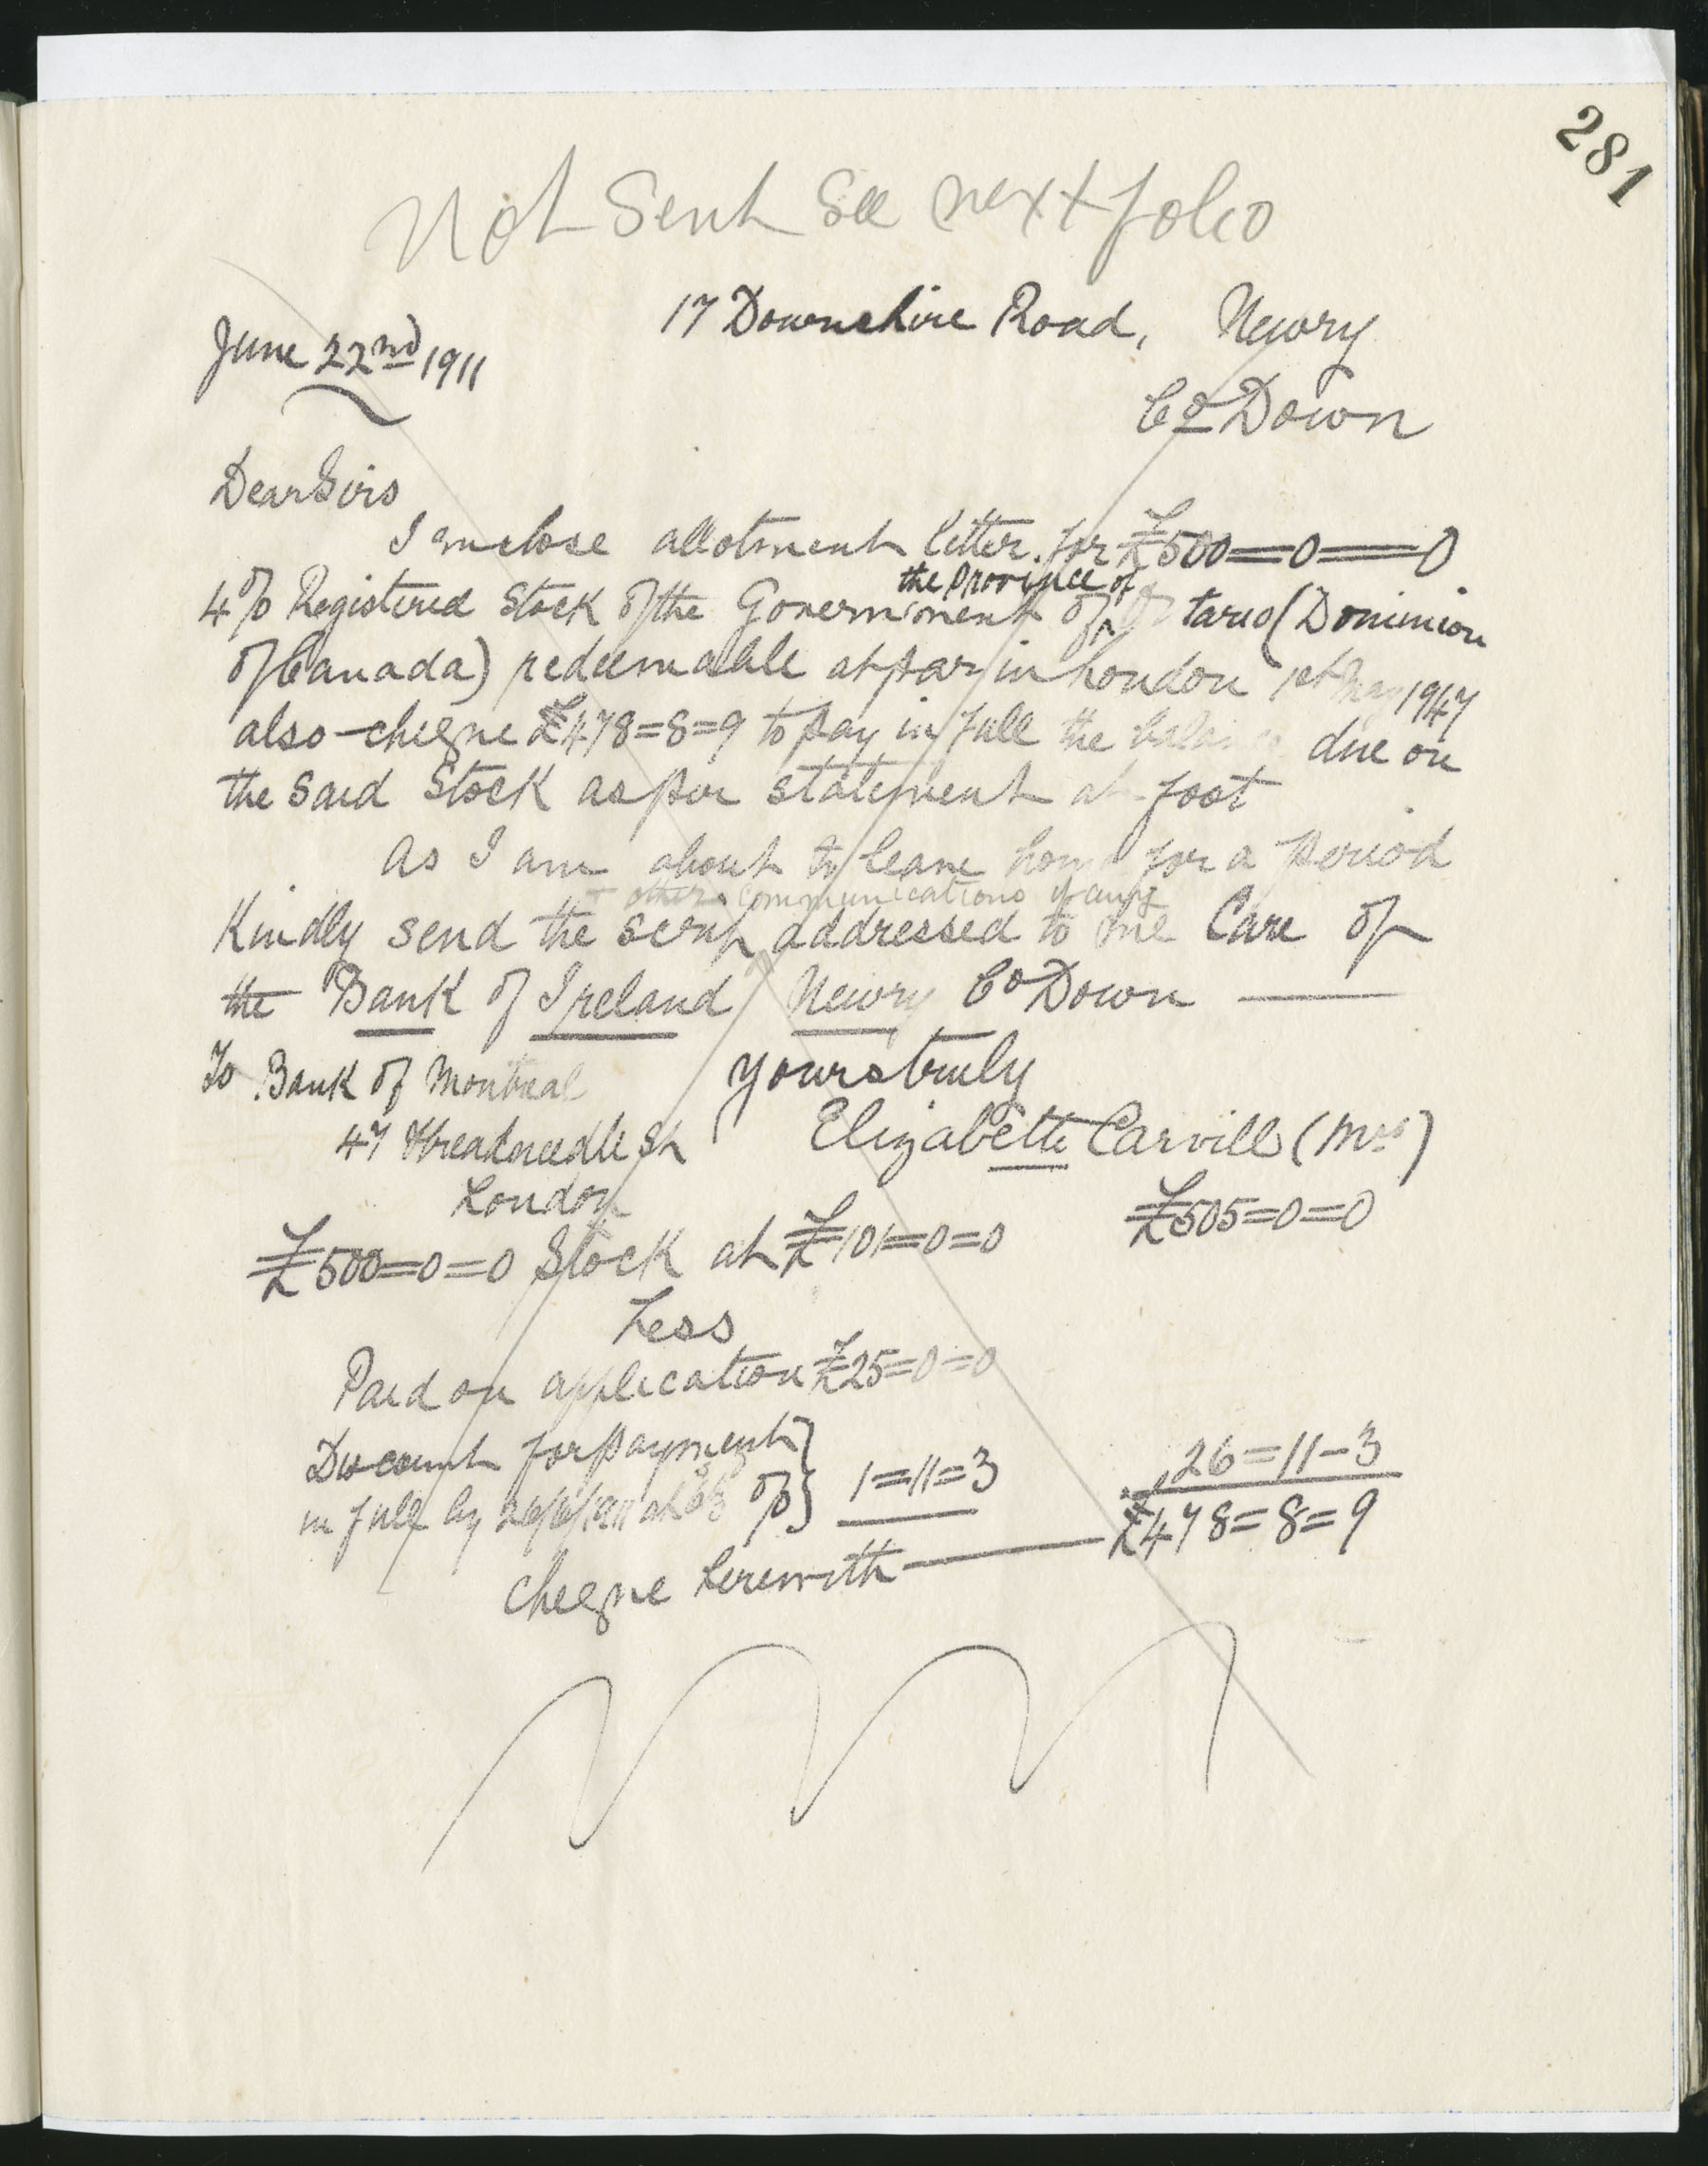 281
Not Sent See next folio
17 Downshire Road, Newry
June 22nd 1911
Co Down
Dear Sirs
I enclose allotment letter for £500=0=0
4% Registered Stock of the Government of the Province of Ontario (Dominion
of Canada) redeemable at par in London 1st May 1947
also cheque £478=8=9 to pay in full the balance due on
the said Stock as per statement at foot
As I am about to leave home for a period
+ other communications if any
Kindly send the scrip addressed to me Care of
the Bank of Ireland Newry Co Down
To Bank of Montreal yours truly
47 Threadneedle St Elizabeth Carvill (Mrs)
London
£500=0=0 Stock at £101=0=0 £505=0=0
Less
Paid on application £25=0=0
Discount for payment
in full by 26/6/1911 at % 1=11=3 26=11-3
cheque herewith £478=8=9